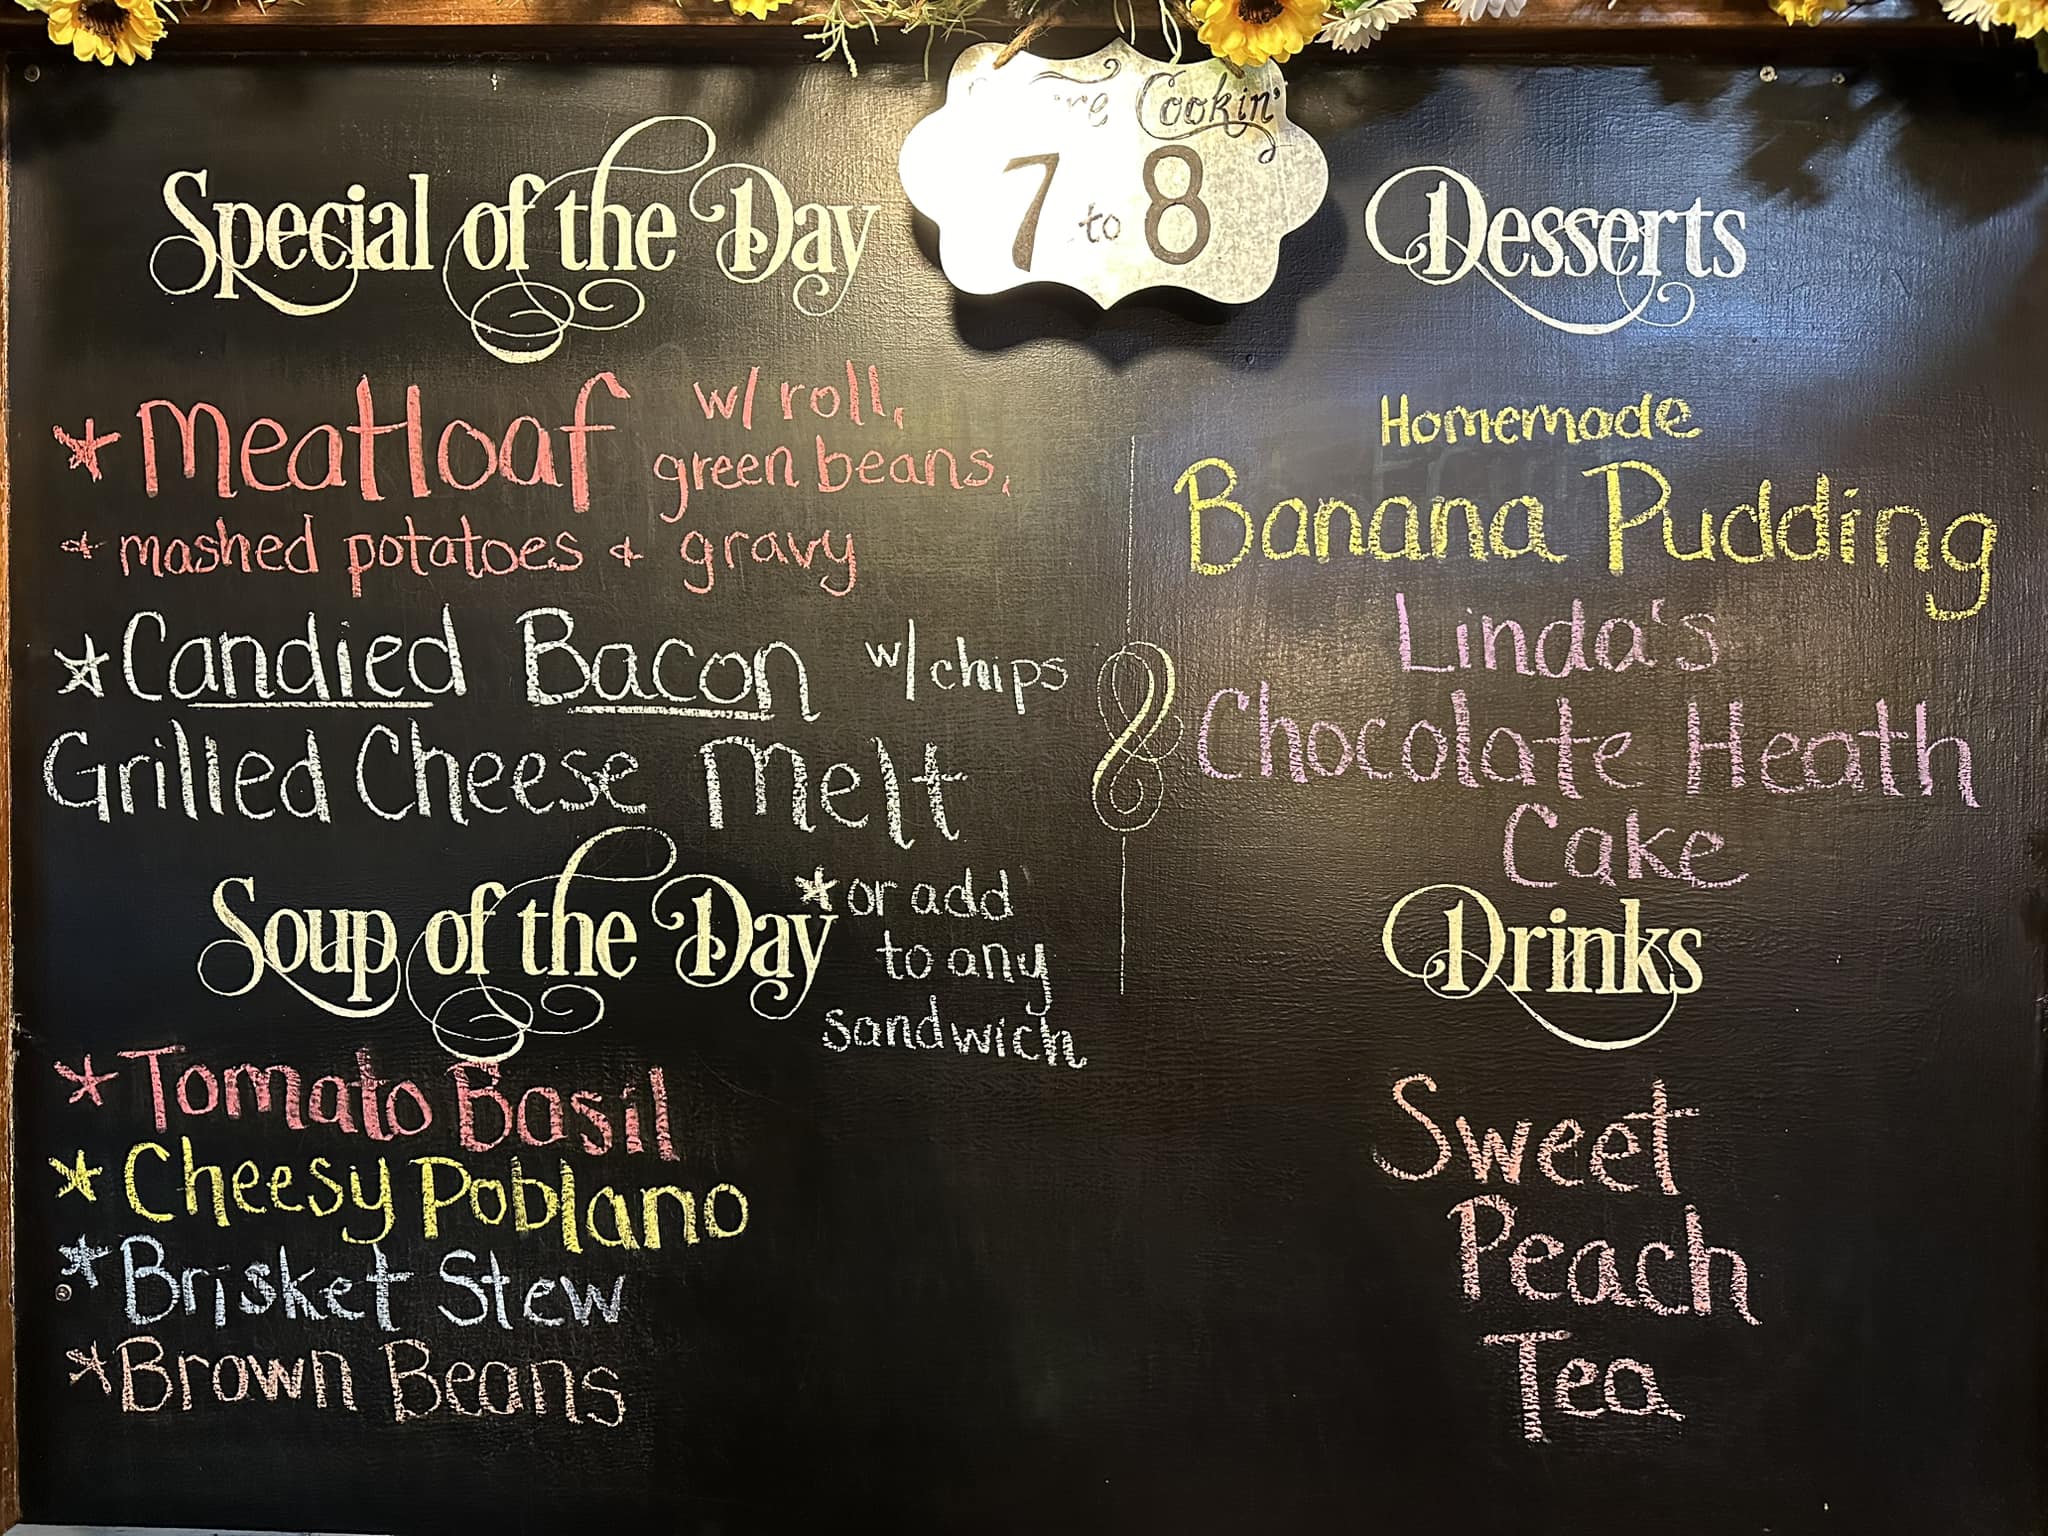 Cookin'
7 to 8
Special of the Day
* Meatloaf w/ roll,
green beans,
+ mashed potatoes + gravy
* Candied Bacon w/ chips
Grilled Cheese Melt
* or add
to any
sandwich
Soup of the Day
* Tomato Basil
* Cheesy Poblano
* Brisket Stew
* Brown Beans
Desserts
Homemade
Banana Pudding
Linda's
Chocolate Heath
Cake
Drinks
Sweet
Peach
Tea